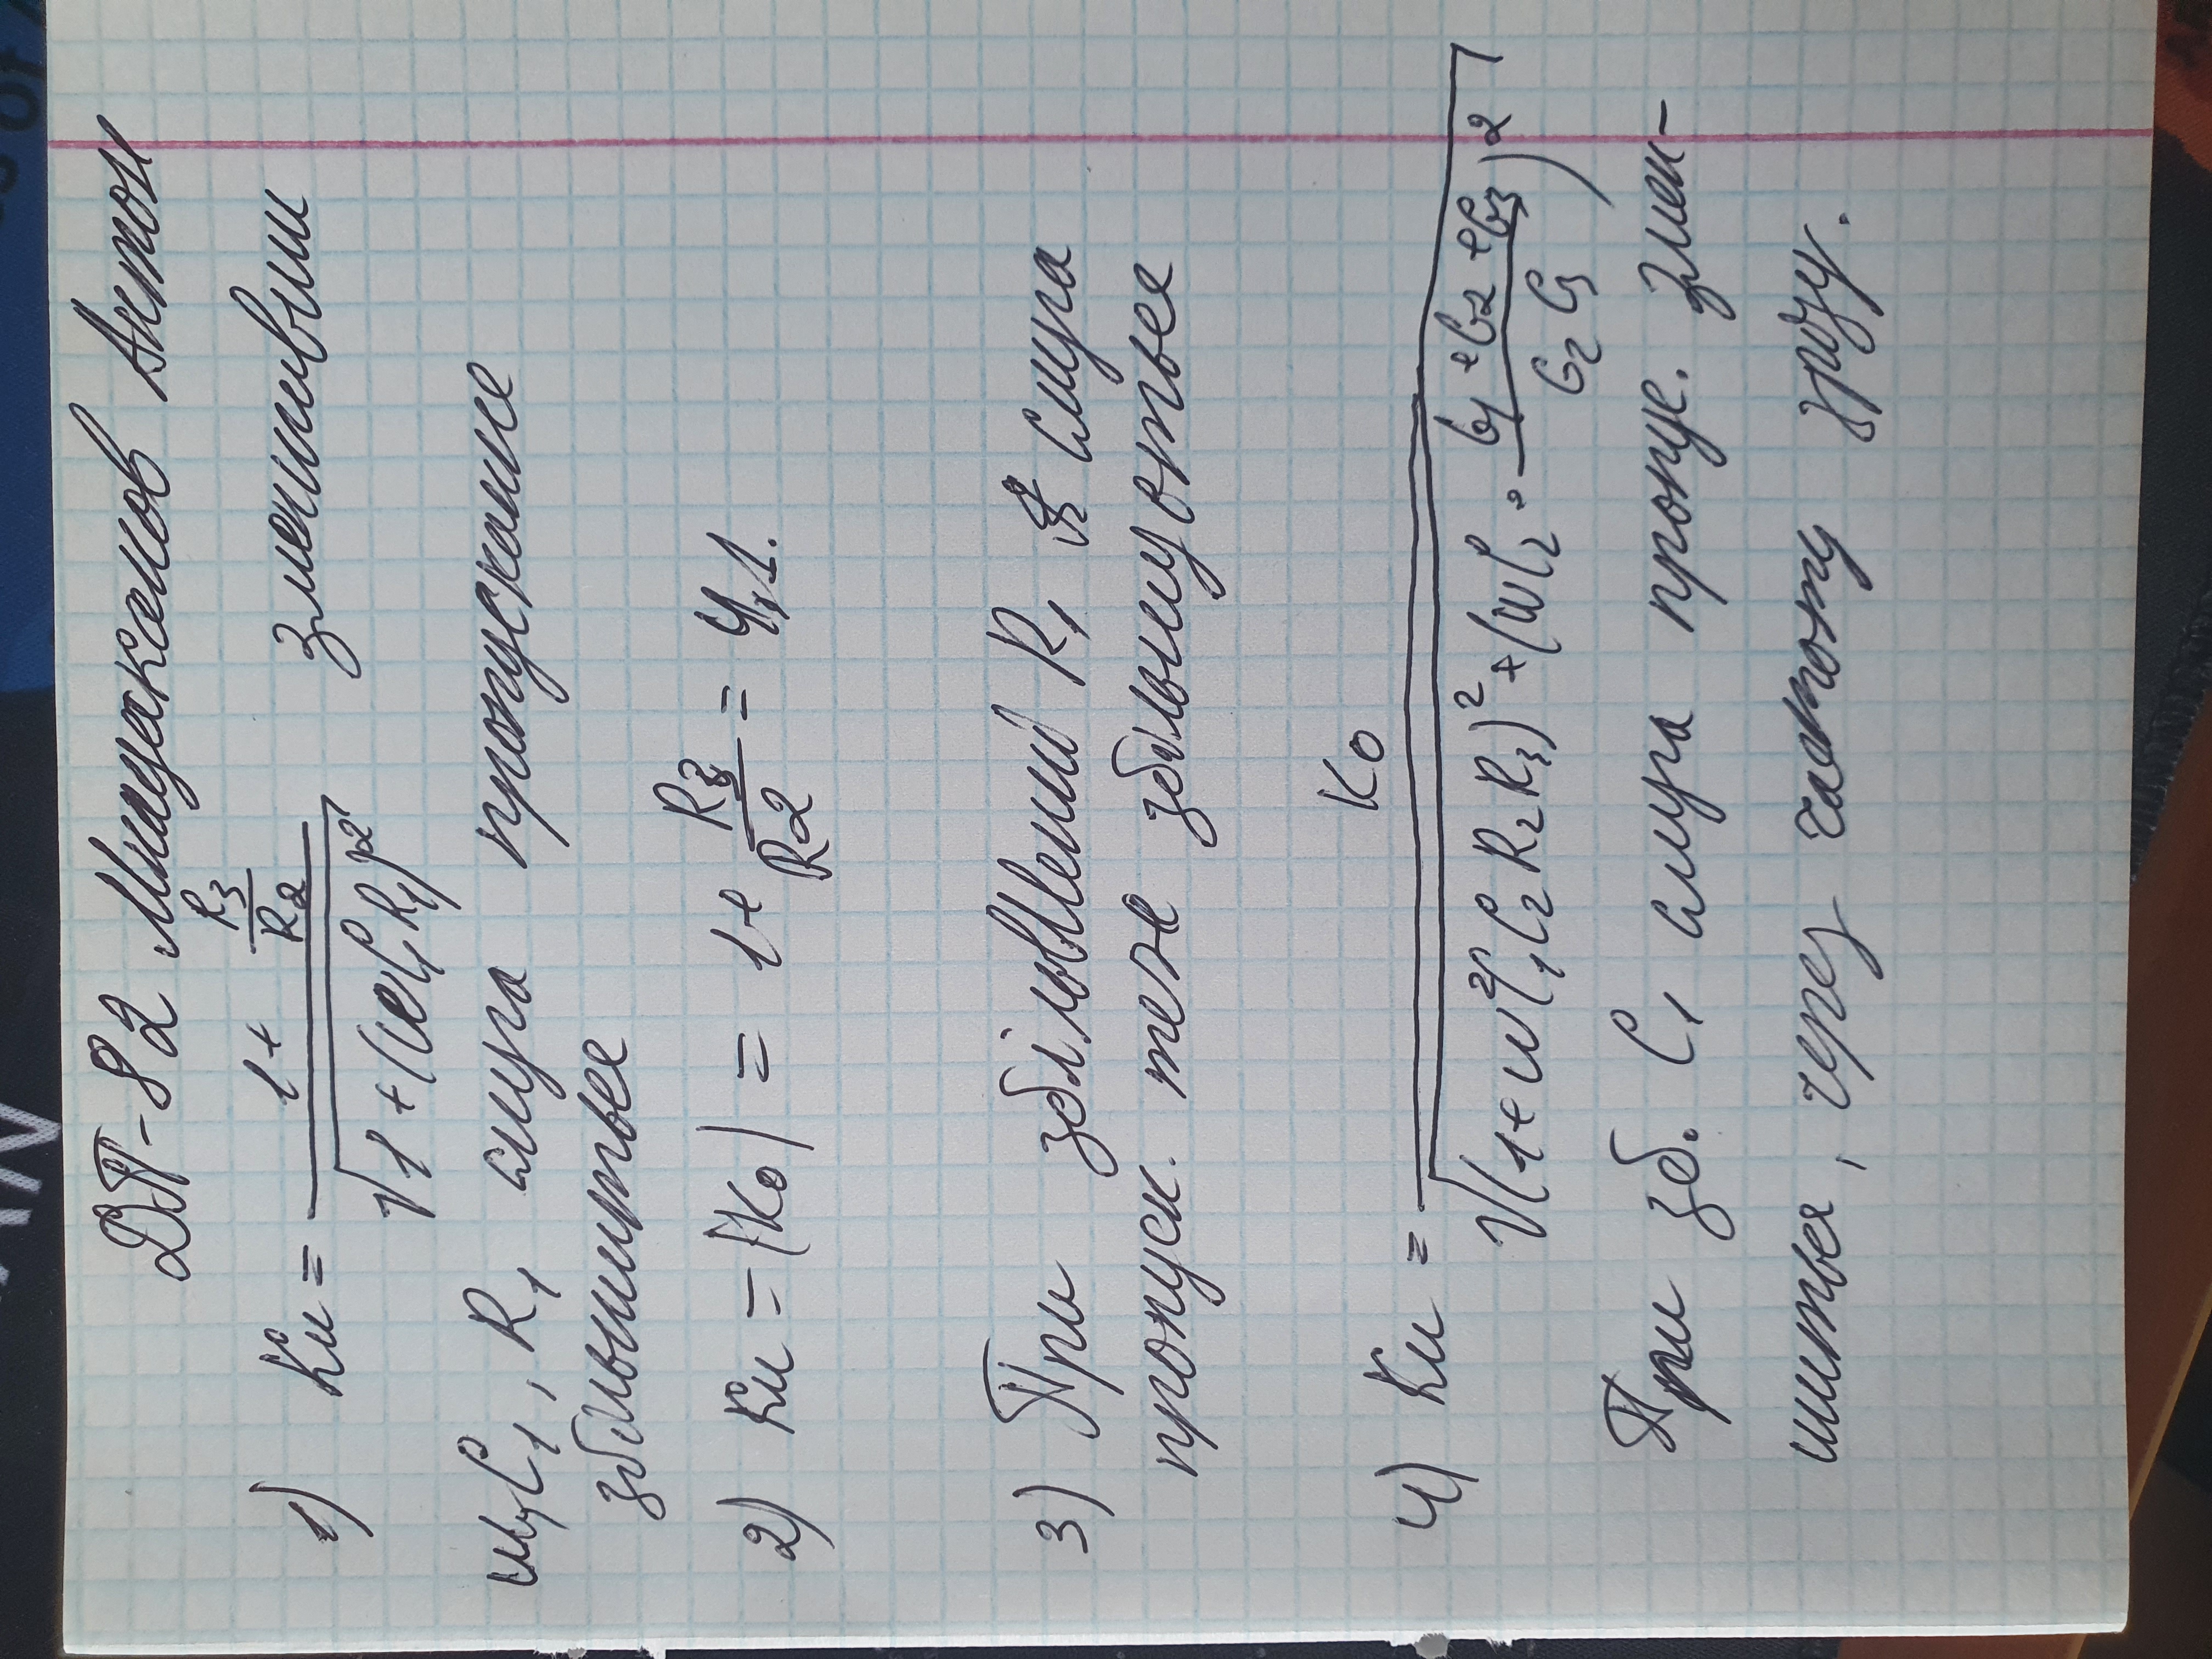 ДП-82 Мнадаканов Антон
1) Kи = (1 + R3/R2) / √(1 + (ωC₁R₁)²) зменшивши
C₁, R₁ смуга пропускание
збільшиться
2) Kи = |K₀| = 1 + R3/R2 = 4,1.
3) При збільшенні R₁ смуга
пропуск. теж збільшується
4) Kи = K₀ / √((1 + ω²C₁C₂R₂R₃)² + (ωC₂ · (G1 + G2 + G3)/(G₂G₃))²)
При зб. C₁ смуга пропус. змен-
шиться, через частоту зрізу.